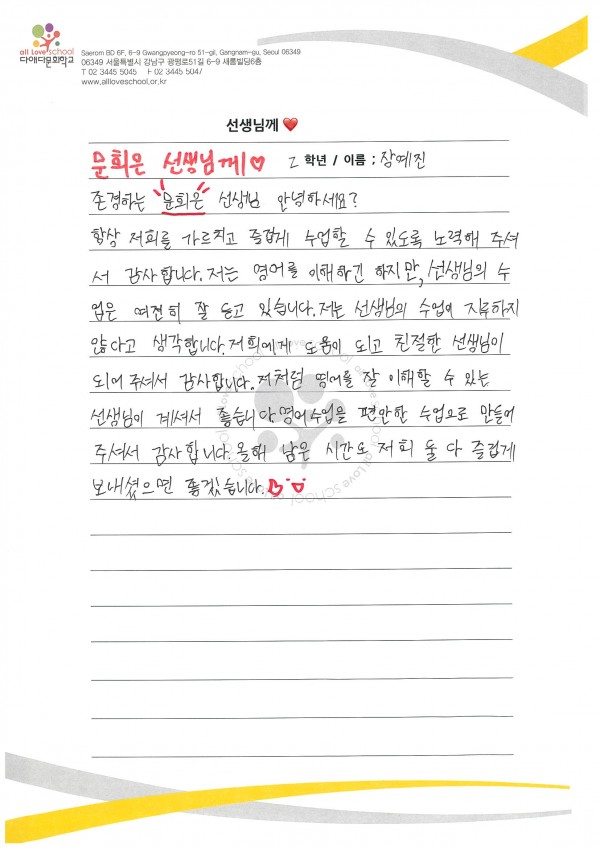 all Love school
다애다문화학교
Saerom BD 6F, 6-9 Gwangpyeong-ro 51-gil, Gangnam-gu, Seoul 06349
06349 서울특별시 강남구 광평로51길 6-9 새롬빌딩6층
T 02 3445 5045 F 02 3445 5047
www.alloveschool.or.kr
선생님께 ❤
문희은 선생님께♡ 2 학년 / 이름 : 장예진
존경하는 문희은 선생님 안녕하세요?
항상 저희를 가르치고 즐겁게 수업할 수 있도록 노력해 주셔
서 감사합니다. 저는 영어를 이해하긴 하지만, 선생님의 수
업은 여전히 잘 듣고 있습니다. 저는 선생님의 수업이 지루하지
않다고 생각합니다. 저희에게 도움이 되고 친절한 선생님이
되어 주셔서 감사합니다. 저처럼 영어를 잘 이해할 수 있는
선생님이 계셔서 좋습니다 영어수업을 편안한 수업으로 만들어
주셔서 감사합니다. 올해 남은 시간도 저희 둘 다 즐겁게
보내셨으면 좋겠습니다.